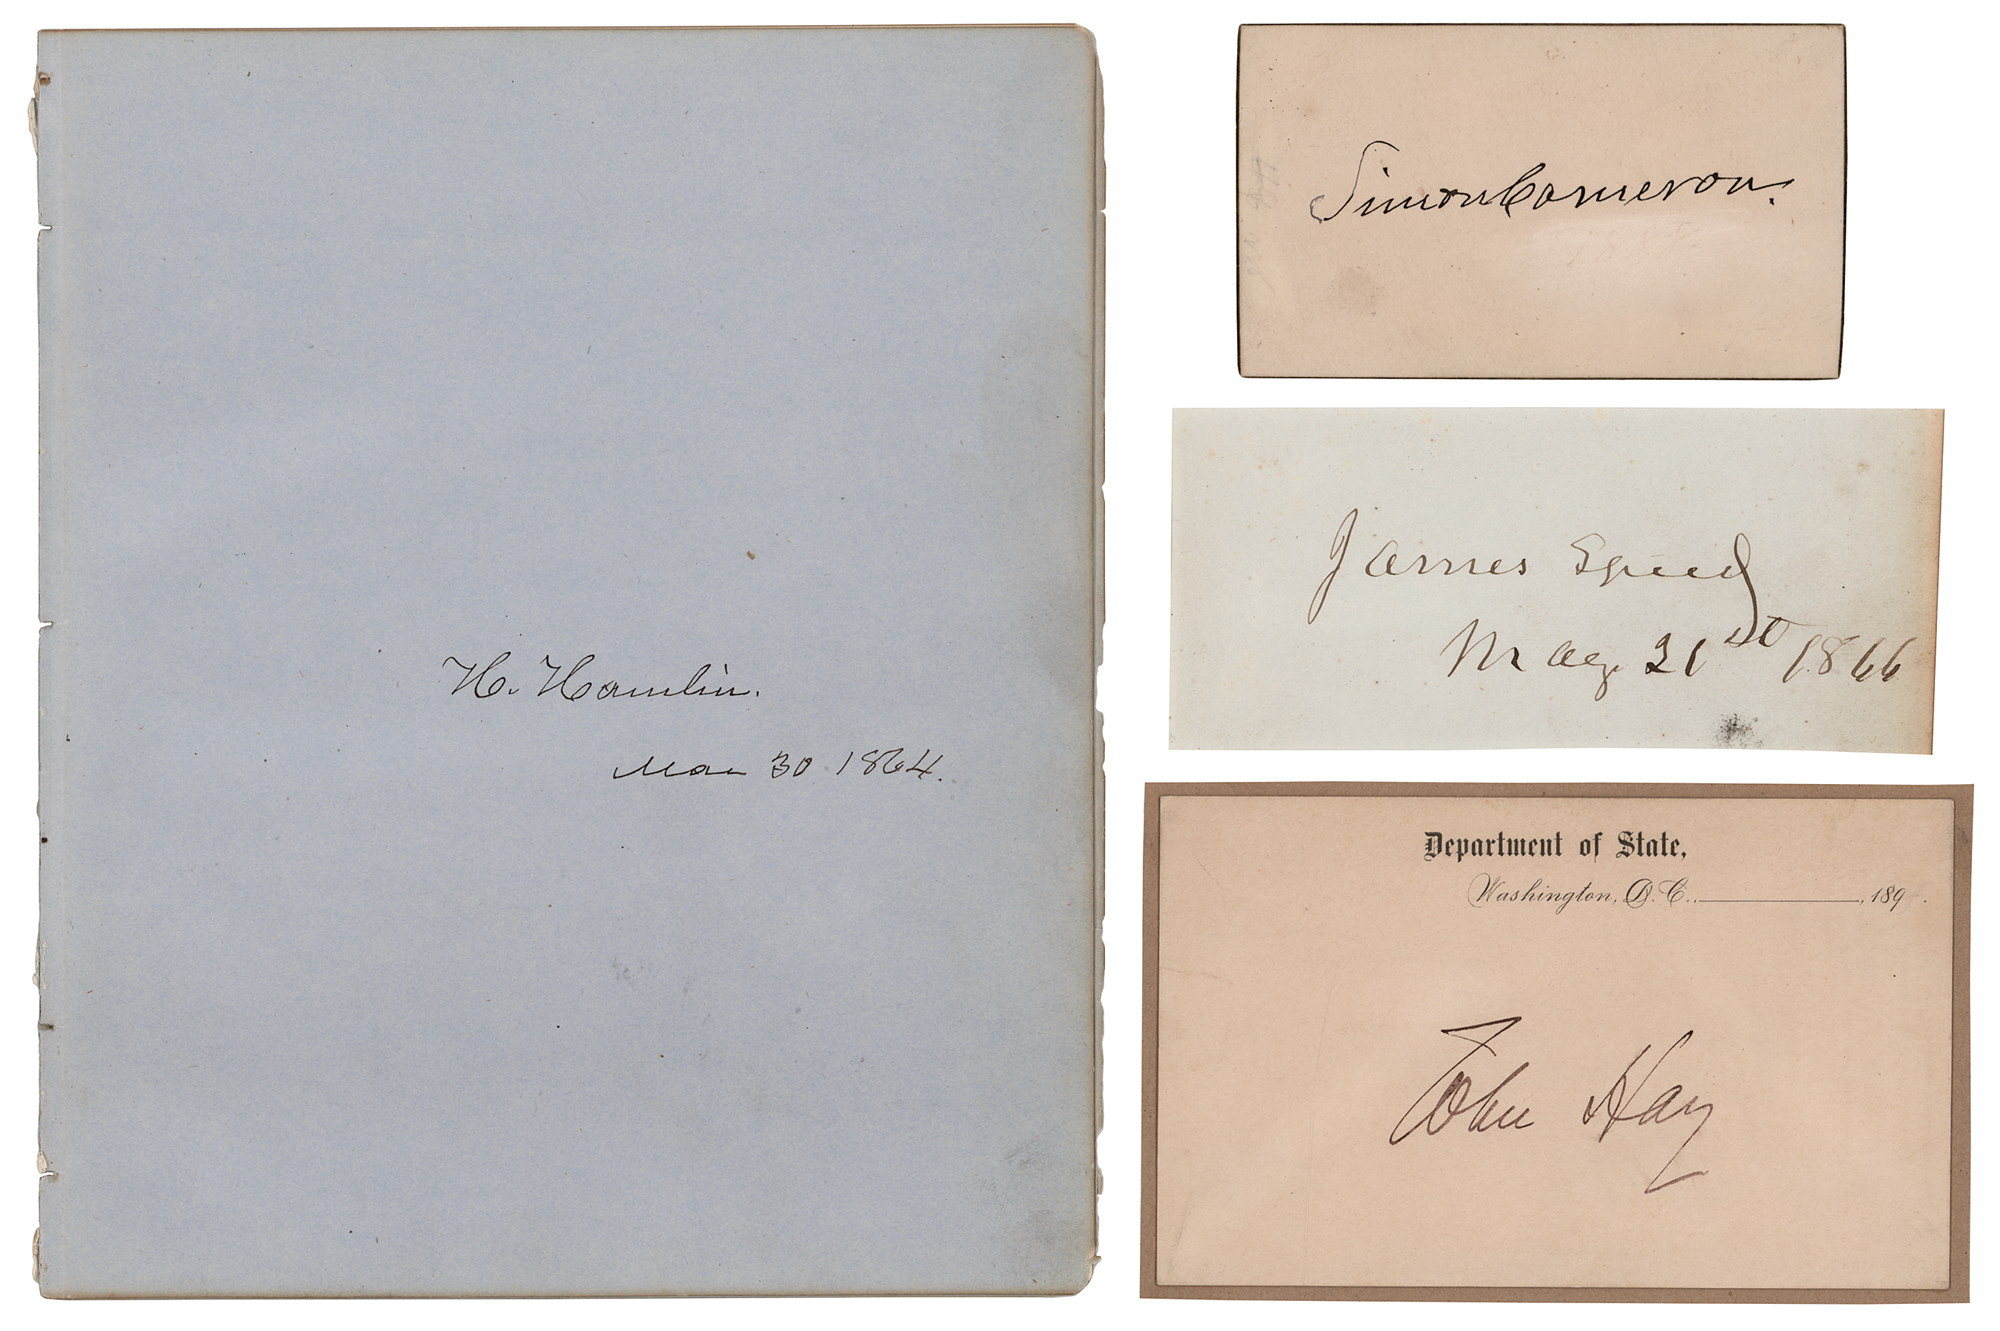 H. Hamlin.
Mar 30 1864.
Simon Cameron.
James Speed
May 21st 1866
Department of State,
Washington, D.C., ____________, 189 .
John Hay